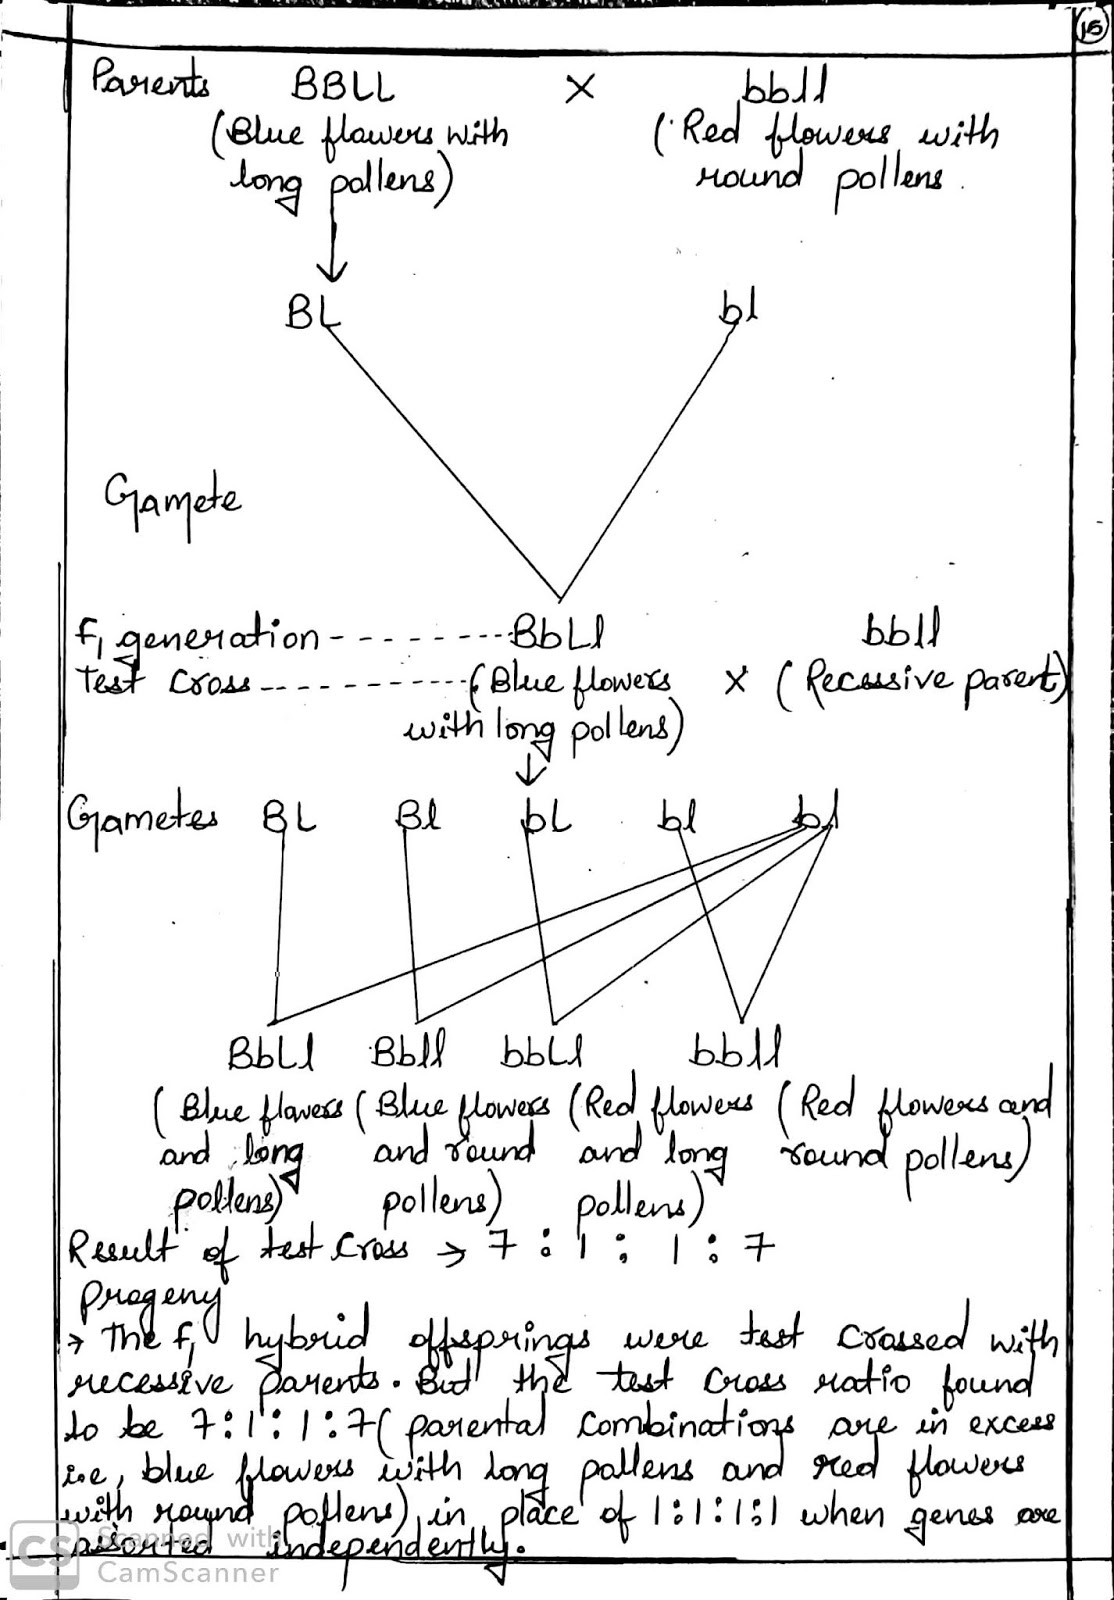 15
Parents BBLL × bbll
(Blue flowers with (Red flowers with
long pollens) round pollens.
BL bl
Gamete
F1 generation - - - - - - - - BbLl bbll
Test Cross - - - - - - - - - - - (Blue flowers × (Recessive parent)
with long pollens)
Gametes BL Bl bL bl bl
BbLl Bbll bbLl bbll
(Blue flowers (Blue flowers (Red flowers (Red flowers and
and long and round and long round pollens)
pollens) pollens) pollens)
Result of test Cross → 7 : 1 : 1 : 7
Progeny
→ The F1 hybrid offsprings were test crossed with
recessive parents. But the test cross ratio found
to be 7:1:1:7 (parental combinations are in excess
i.e, blue flowers with long pollens and red flowers
with round pollens) in place of 1:1:1:1 when genes are
assorted independently.
CS Scanned with
CamScanner